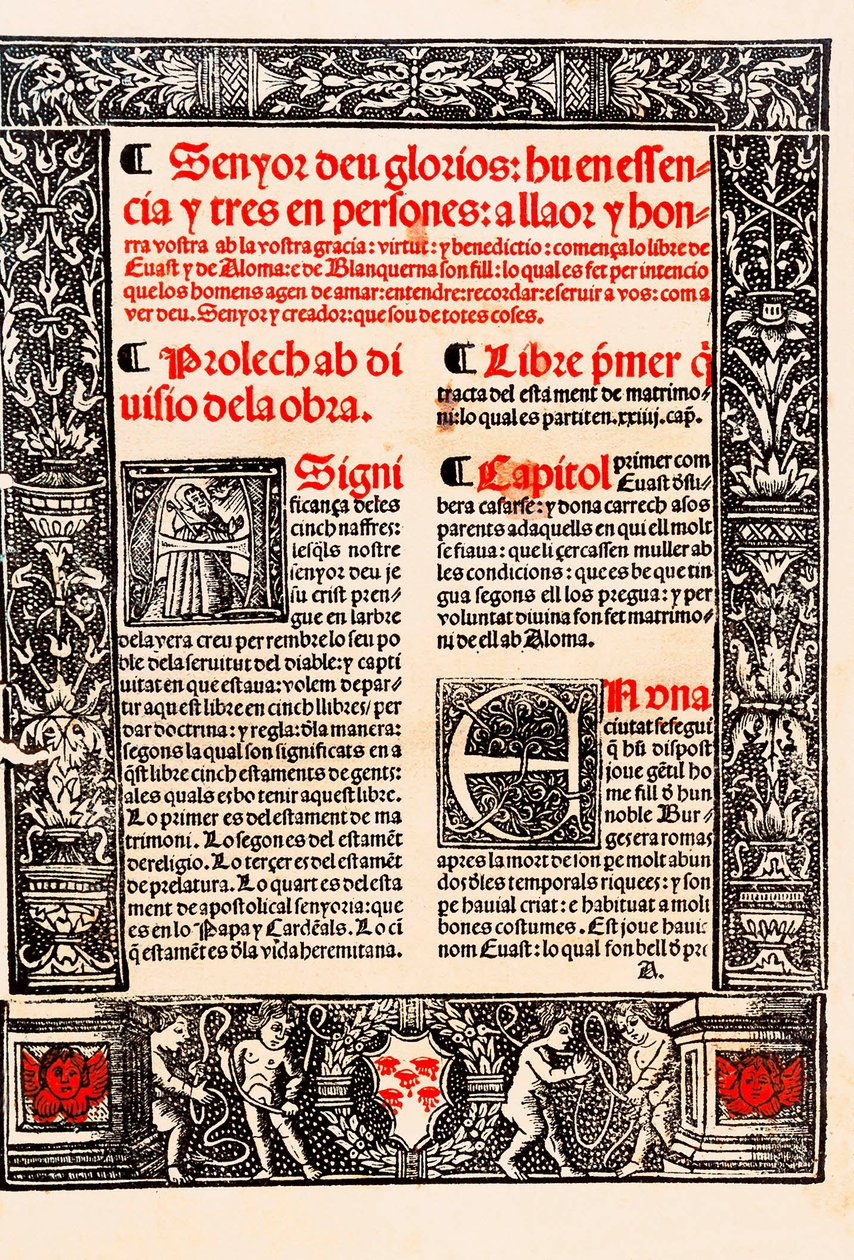 ¶ Senyor deu glorios: hu en essen⸗
cia y tres en persones: a llaor y hon⸗
rra vostra ab la vostra gracia: virtut: y benedictio: comença lo libre de
Euast y de Aloma: e de Blanquerna son fill: lo qual es fet per intencio
que los homens agen de amar: entendre: recordar: e seruir a vos: com a
ver deu. Senyor y creador: que sou de totes coses.
¶ Prolech ab di
uisio dela obra.
A Signi
ficança deles
cinch naffres:
lesq̄ls nostre
senyor deu je
su crist pren⸗
gue en larbre
dela vera creu per rembre lo seu po
ble dela seruitut del diable: y capti
uitat en que estaua: volem depar⸗
tir aquest libre en cinch llibres/ per
dar doctrina: y regla: d̄la manera:
segons la qual son significats en a
q̄st libre cinch estaments de gents:
ales quals es bo tenir aquest libre.
Lo primer es del estament de ma
trimoni. Lo segon es del estamēt
de religio. Lo terçer es del estamēt
de prelatura. Lo quart es del esta
ment de apostolical senyoria: que
es en lo Papa y Cardēals. Lo ci
q̄ estamēt es d̄la vida heremitana.
¶ Libre p̄mer q̄
tracta del estament de matrimo⸗
ni: lo qual es partit en .xxiiij. cap̄.
¶ Capitol primer com
Euast d̄su⸗
bera casarse: y dona carrech a sos
parents ad aquells en qui ell molt
se fiaua: que li çercassen muller ab
les condicions: que es be que tin
gua segons ell los pregua: y per
voluntat diuina fon fet matrimo⸗
ni de ell ab Aloma.
EN vna
ciutat se segui
q̄ hū dispost
joue gētil ho
me fill d̄ hun
noble Bur⸗
ges era romas
apres la mort de son p̄e molt abun
dos d̄les temporals riquees: y son
p̄e hauial criat: e habituat a molt
bones costumes. Est joue hauie
nom Euast: lo qual fon bell d̄ pri
A.